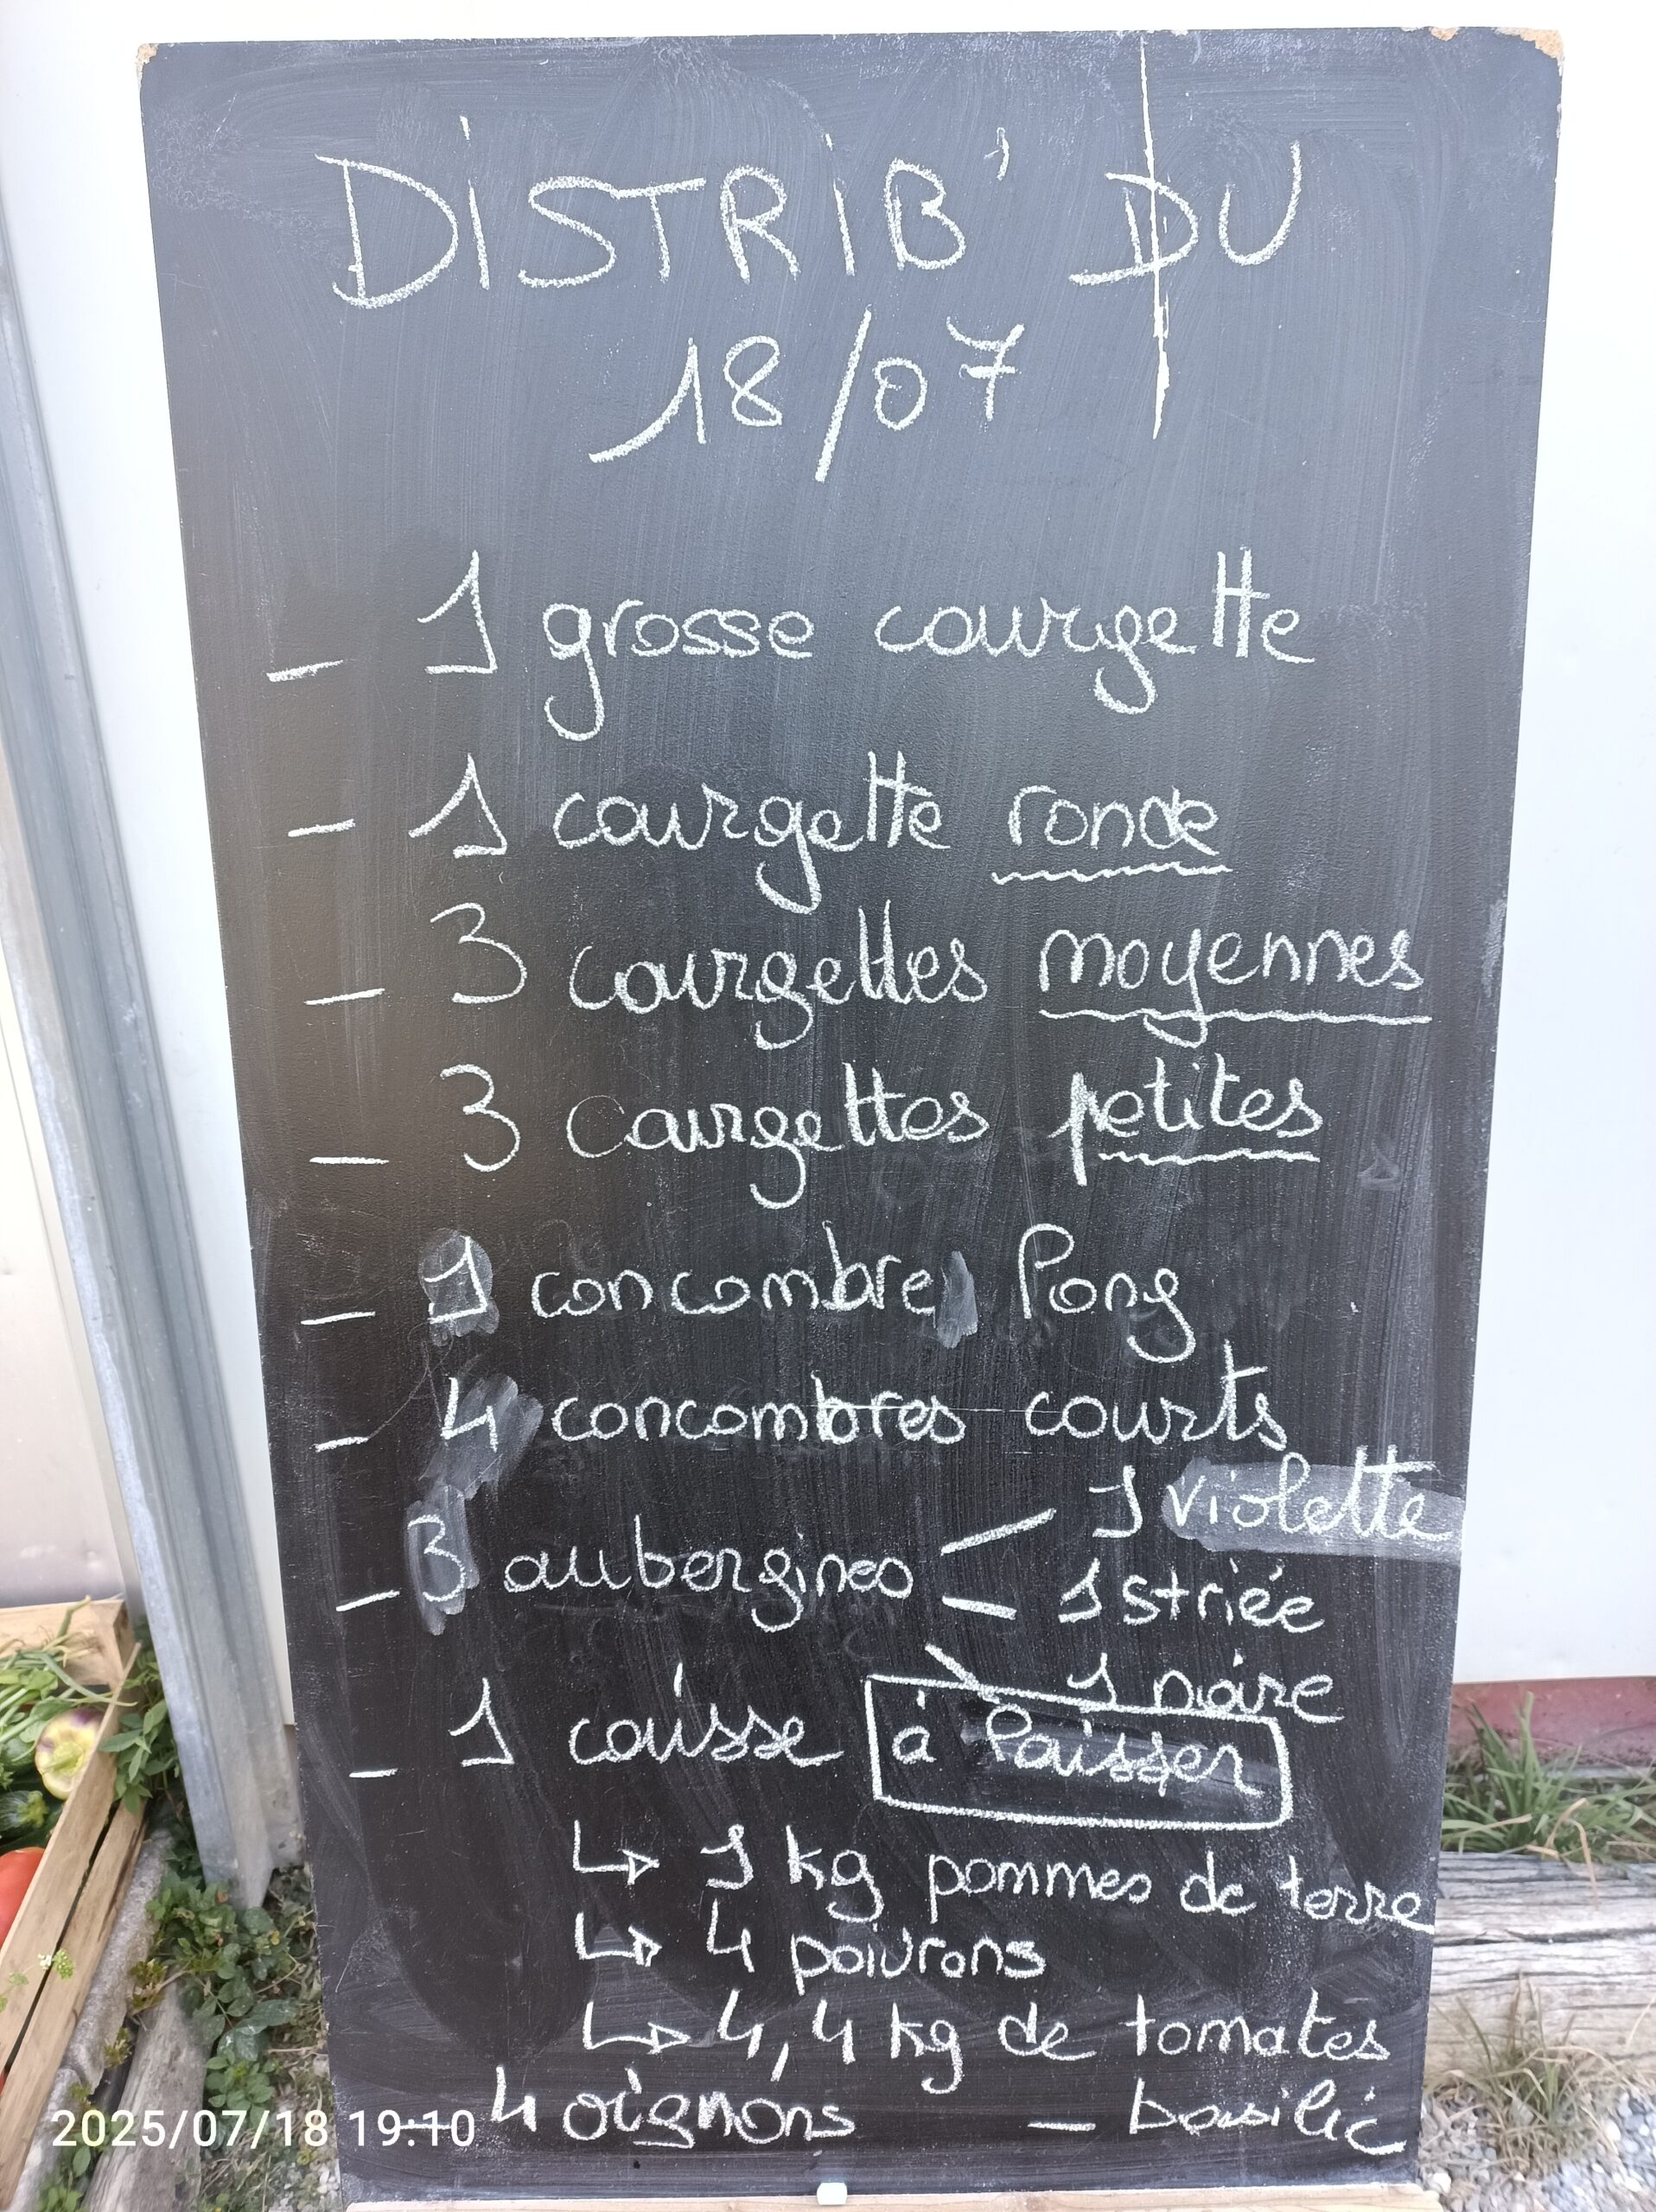 DiSTRiB' DU
18/07
- 1 grosse courgette
- 1 courgette ronde
- 3 courgettes moyennes
- 3 courgettes petites
- 1 concombre long
- 4 concombres courts
- 3 aubergines - 1 violette
- 1 striée
- 1 noire
- 1 caisse à laisser
↳ 1 kg pommes de terre
↳ 4 poivrons
↳ 4,4 kg de tomates
4 oignons - basilic
2025/07/18 19:10